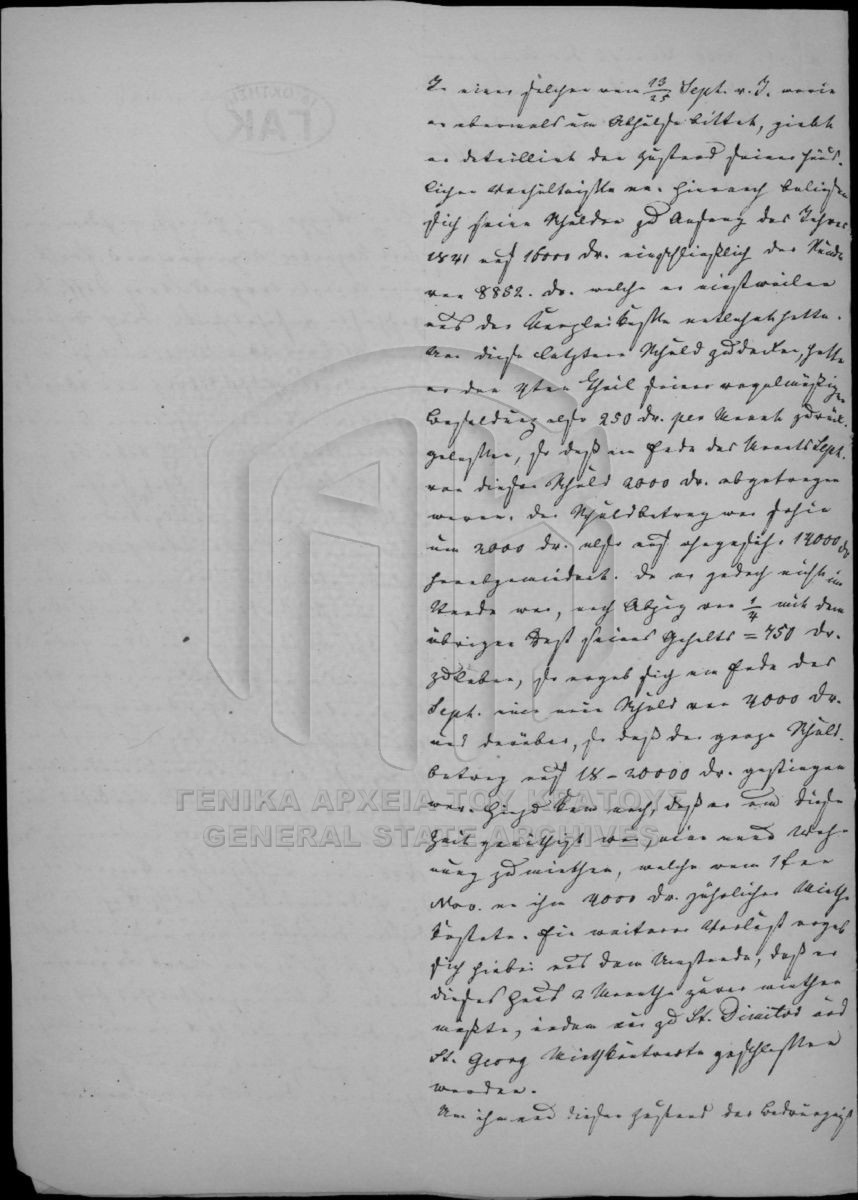 In einer solchen vom 13/25 Sept. v. J. worin
er abermals um Abhülfe bittet, giebt
er detaillirt den Zustand seiner häus-
lichen Verhältnisse an. Hiernach beliefen
sich seine Schulden zu Anfang des Jahres
1841 auf 16000 Dr. einschließlich der Summe
von 8852. Dr. welche er einstweilen
aus der Kanzleikasse entlehnt hatte.
Um diese letztere Schuld zu decken, hatte
er den 4ten Theil seiner regelmäßigen
Besoldung also 250 Dr. per Monat zurück-
gelassen, so daß am Ende des Monats Sept.
von dieser Schuld 2000 Dr. abgetragen
waren. Der Schuldbetrag war sohin
um 2000 Dr. also auf ohngefähr 14000 Dr
herabgemindert. Da er jedoch nicht im
Stande war, nach Abzug von 1/4 mit dem
übrigen Rest seines Gehalts = 750 Dr.
zu leben, so ergab sich am Ende des
Sept. eine neue Schuld von 4000 Dr.
und darüber, so daß der ganze Schuld-
betrag auf 18 – 20000 Dr. gestiegen
war. Hiezu kam noch, daß er um diese
Zeit genöthigt war, eine neue Woh-
nung zu miethen, welche vom 1ten
Nov. an ihm 4000 Dr. jährlicher Miethe
kostete. Ein weiterer Verlust ergab
sich hiebei aus dem Umstande, daß er
dieses Haus 2 Monathe zuvor miethen
mußte, indem nur zu St. Dimitrios und
St. Georg Miethkontracte geschlossen
werden.
Um ihn aus diesem Zustand der Bedrängniß
ΓΕΝΙΚΑ ΑΡΧΕΙΑ ΤΟΥ ΚΡΑΤΟΥΣ
GENERAL STATE ARCHIVES
ΓΑΚ